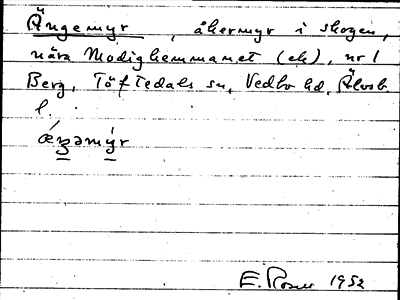 Ängemyr, åkermyr i skogen,
nära Modighemmanet (ek), nr 1
Berg, Töftedals sn, Vedbo hd, Älvsb.
l.
ǽŋəmýr
E. Rosen 1952